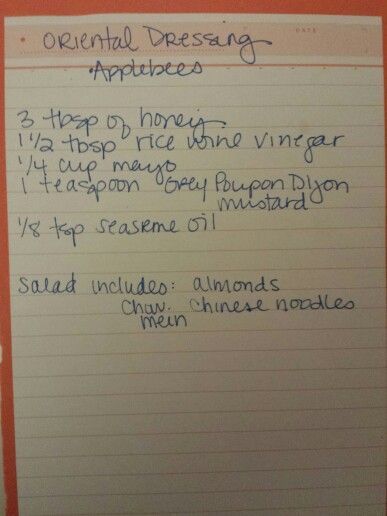 • Oriental Dressing
DATE
• Applebees
3 tbsp of honey
1 1/2 tbsp rice wine vinegar
1/4 cup mayo
1 teaspoon Grey Poupon Dijon
mustard
1/8 tsp seaseme oil
Salad includes: almonds
Chow. Chinese noodles
mein